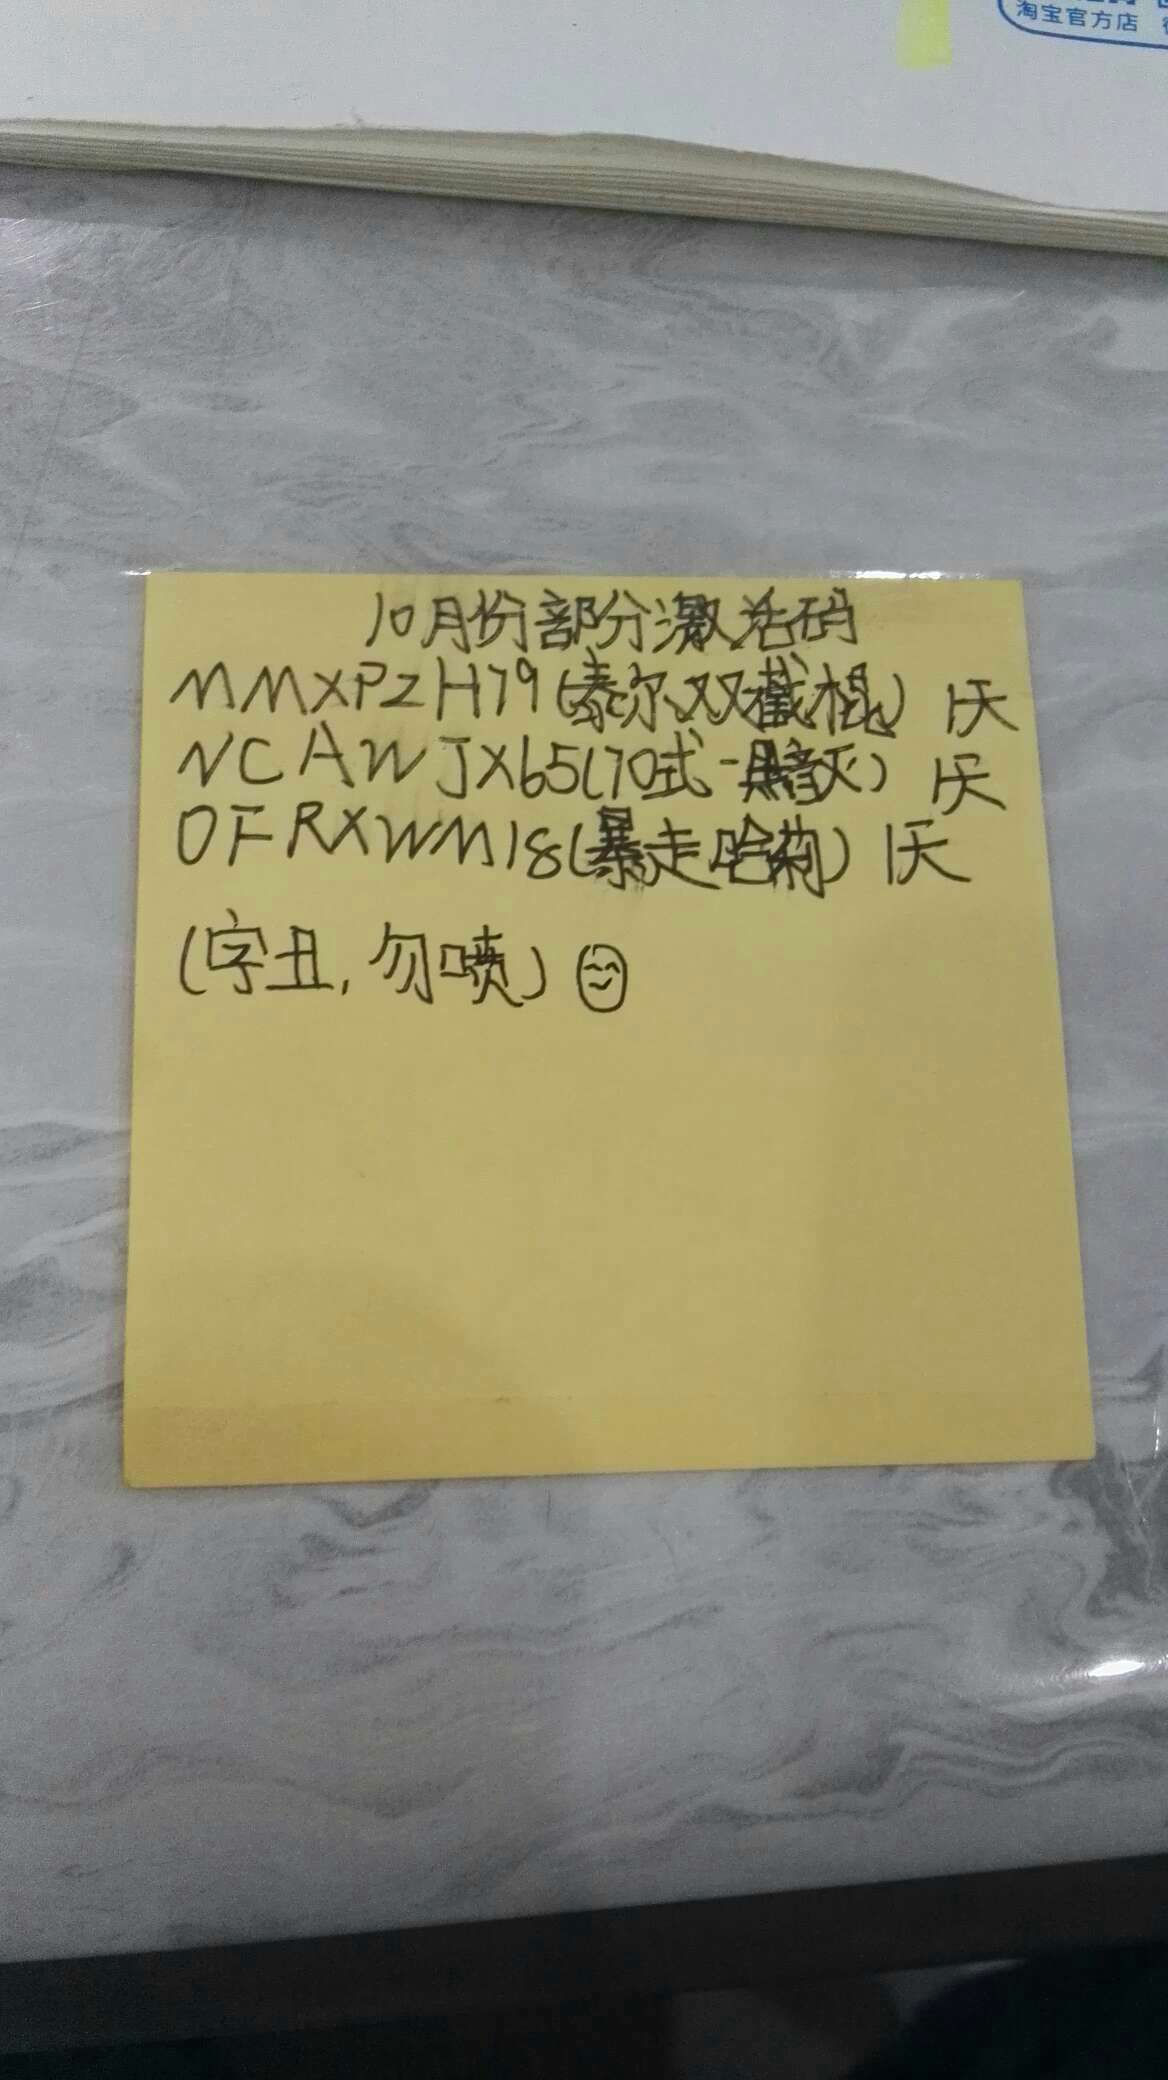 淘宝官方店
10月份部分激活码
MMXPZH79(泰尔双截棍) 1天
NCAWJX65(70式-黯灭) 1天
OFRXWM18(暴走哈莉) 1天
(字丑,勿喷)